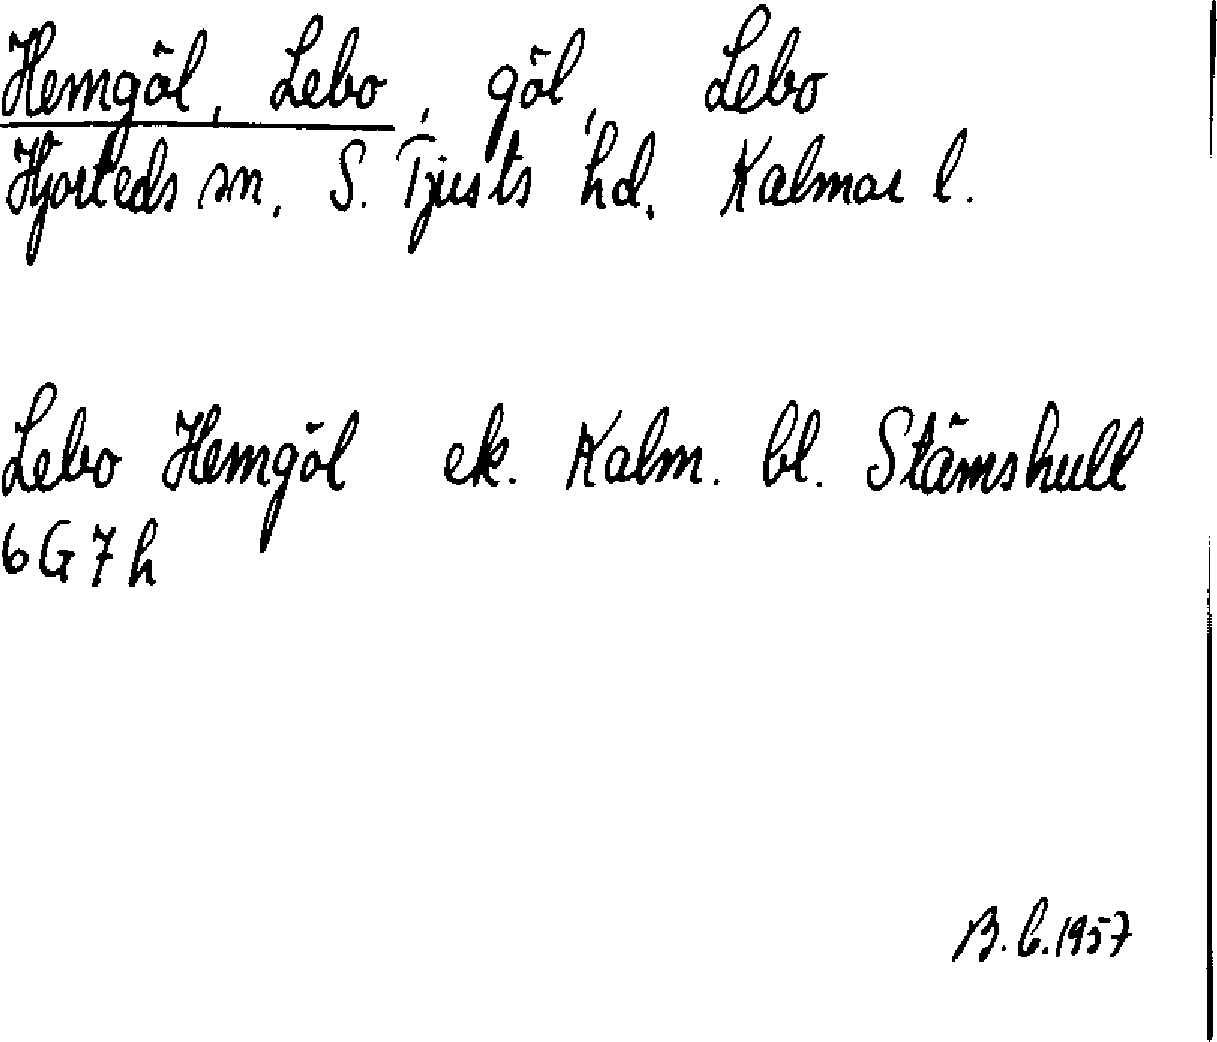 Hemgöl, Lebo, göl, Lebo
Hjorteds sn. S. Tjusts hd. Kalmar l.
Lebo Hemgöl ek. Kalm. bl. Stämshull
6G7h
B.b.1957